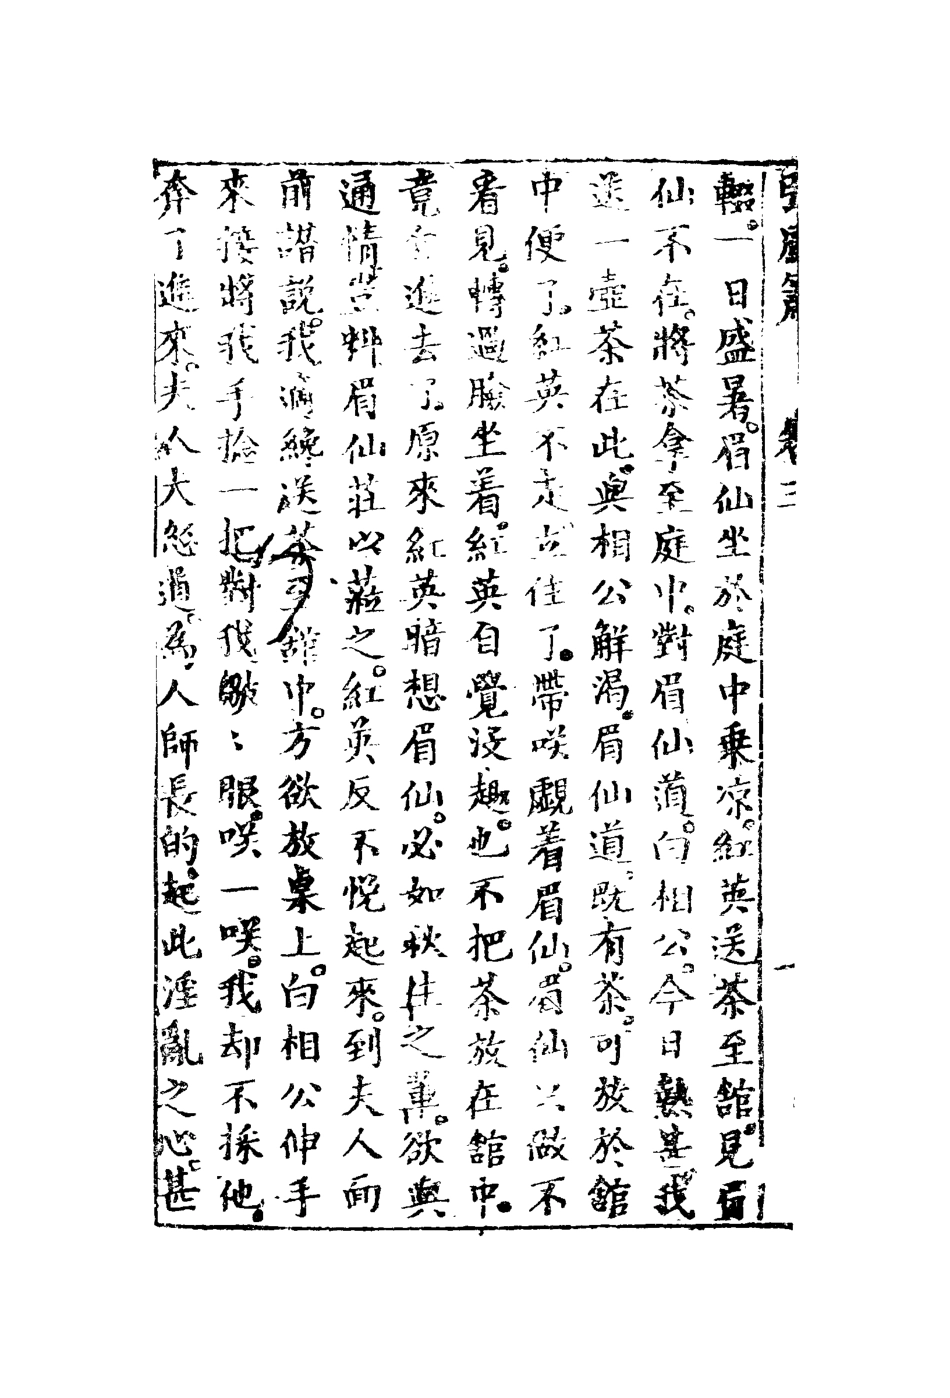 卷三
轍。一日盛暑。眉仙坐於庭中乗凉。紅英送茶至舘。見眉
仙不在。將茶拿至庭中。對眉仙道。白相公。今日熱甚。我
送一壺茶在此。與相公解渴。眉仙道。既有茶。可放於舘
中便了。紅英不走。立住了。帶咲覷着眉仙。眉仙只做不
看見。轉過臉坐着。紅英自覺没趣。也不把茶放在舘中。
竟自進去了。原來紅英暗想眉仙。必如秋生之輩。欲與
通情。豈料眉仙莊以蒞之。紅英反不悅起來。到夫人面
前譖説。我適纔送茶至舘中。方欲放桌上。白相公伸手
來接。將我手捻一把。對我皺〻眼。咲一咲。我却不採他。
奔了進來。夫人大怒道。爲人師長的。起此淫亂之心。甚